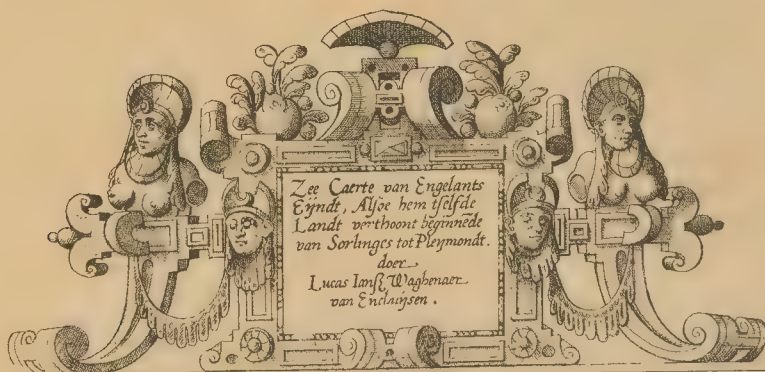 Zee Caerte van Engelants
Eijndt, Alsoe hem tselfde
Landt verthoont beginnēde
van Sorlinges tot Pleijmondt.
doer
Lucas Ianß Waghenaer
van Enchuijsen.